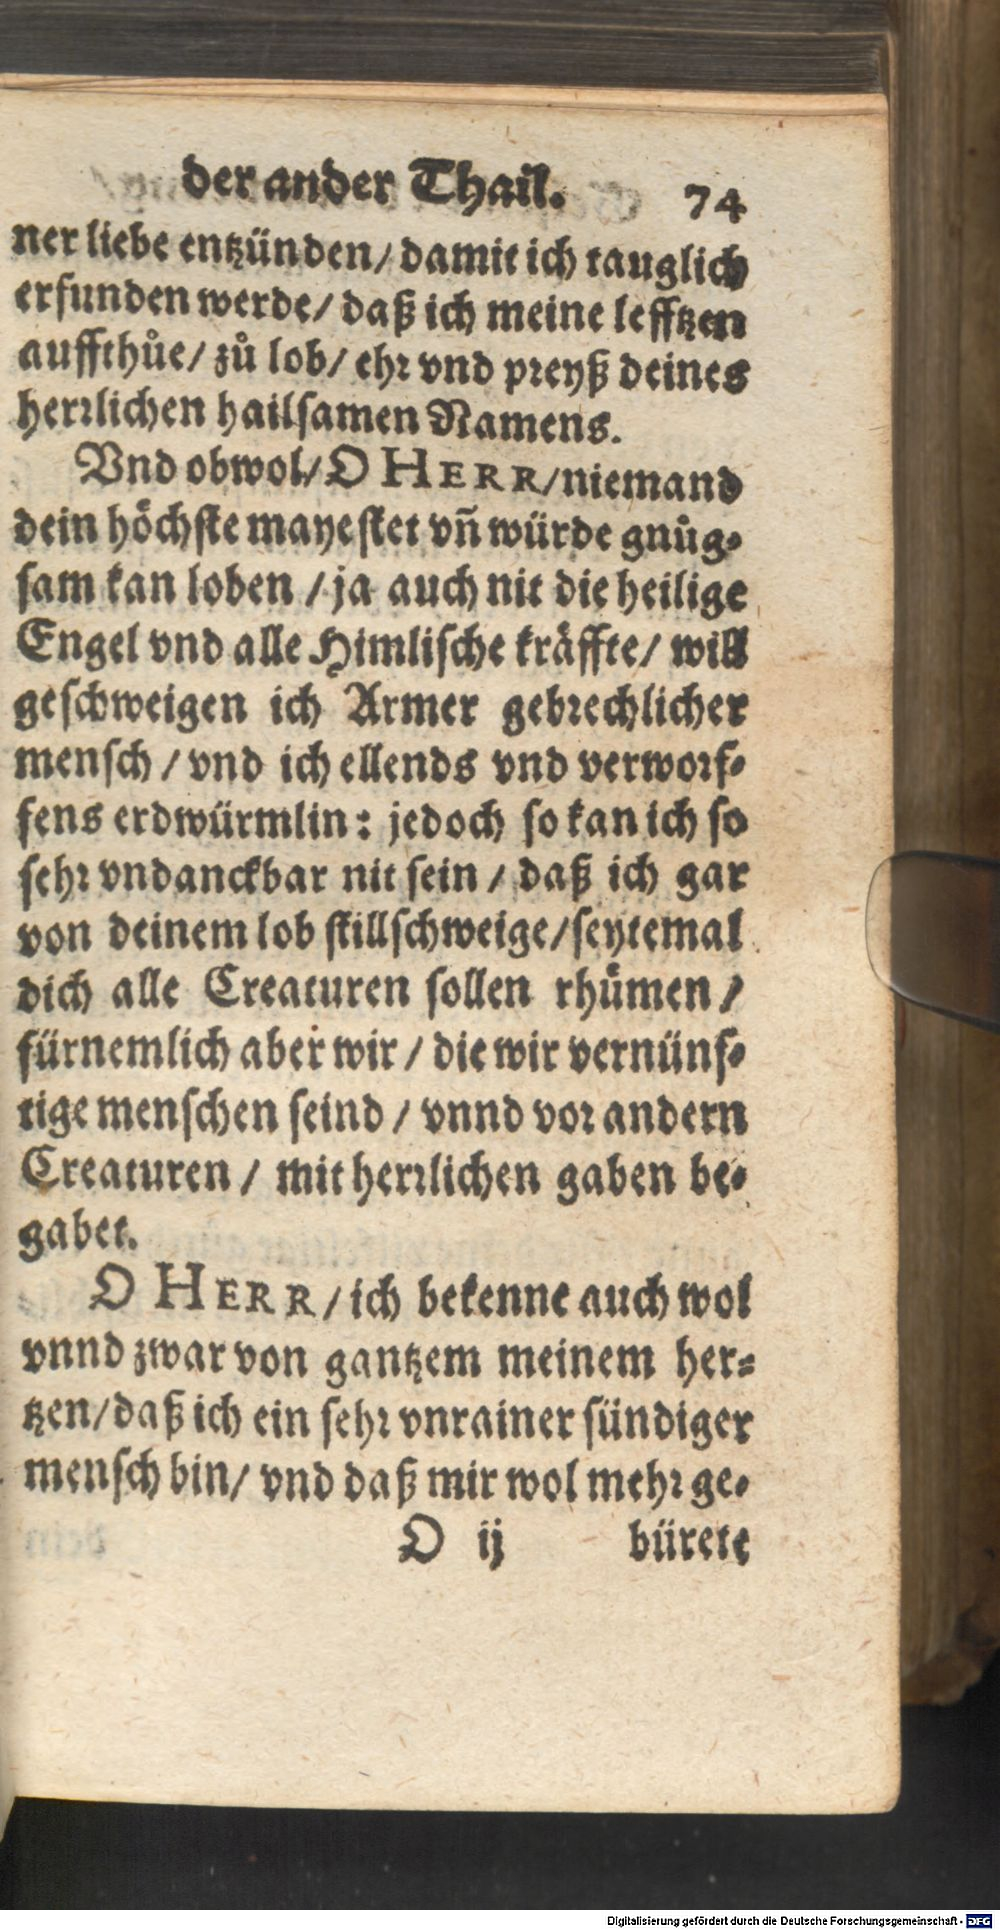 der ander Thail. 74
ner liebe entzünden/ damit ich tauglich
erfunden werde/ daß ich meine lefftzen
auffthůe/ zů lob/ ehr vnd preyß deines
herrlichen hailsamen Namens.
Vnd obwol/ O HERR/ niemand
dein höchste mayestet vñ würde gnůg-
sam kan loben / ja auch nit die heilige
Engel vnd alle Himlische kräffte/ will
geschweigen ich Armer gebrechlicher
mensch / vnd ich ellends vnd verworf-
fens erdwürmlin: jedoch so kan ich so
sehr vndanckbar nit sein / daß ich gar
von deinem lob stillschweige/ seytemal
dich alle Creaturen sollen rhümen /
fürnemlich aber wir / die wir vernünf-
tige menschen seind / vnnd vor andern
Creaturen / mit herrlichen gaben be-
gabet.
O HERR/ ich bekenne auch wol
vnnd zwar von gantzem meinem her-
tzen/ daß ich ein sehr vnrainer sündiger
mensch bin/ vnd daß mir wol mehr ge-
O ij bürete
Digitalisierung gefördert durch die Deutsche Forschungsgemeinschaft - DFG